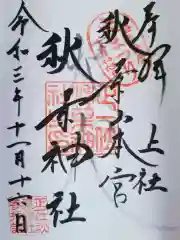 奉拝
上社
秋葉山本宮
秋葉神社
令和三年十一月十六日